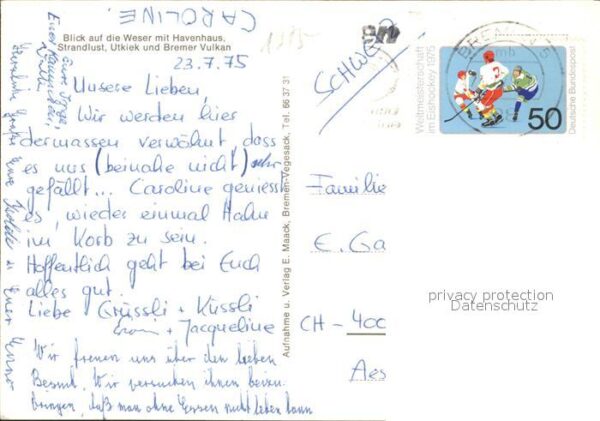 CAROLINE.
Blick auf die Weser mit Havenhaus,
Strandlust, Utkiek und Bremer Vulkan
23.7.75
Unsere Lieben,
Wir werden hier
dermassen verwöhnt, dass
es uns (beinahe nicht) sehr
gefällt... Caroline geniesst
es, wieder einmal Hahn
im Korb zu sein.
Hoffentlich geht bei Euch
alles gut.
Liebe Grüssli + Küssli
+ Jacqueline
Wir freuen uns über den lieben
Besuch. Wir versuchen ihnen beizu-
bringen, daß man ohne Essen nicht leben kann
Herzliche Grüße Eure
Aufnahme u. Verlag E. Maack, Bremen-Vegesack, Tel. 66 37 31
SCHWEIZ
BREMEN
Weltmeisterschaft
im Eishockey 1975
50
Deutsche Bundespost
Familie
E. Ga
CH - 400
Aes
privacy protection
Datenschutz